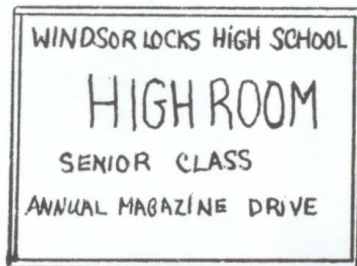 WINDSOR LOCKS HIGH SCHOOL
HIGH ROOM
SENIOR CLASS
ANNUAL MAGAZINE DRIVE